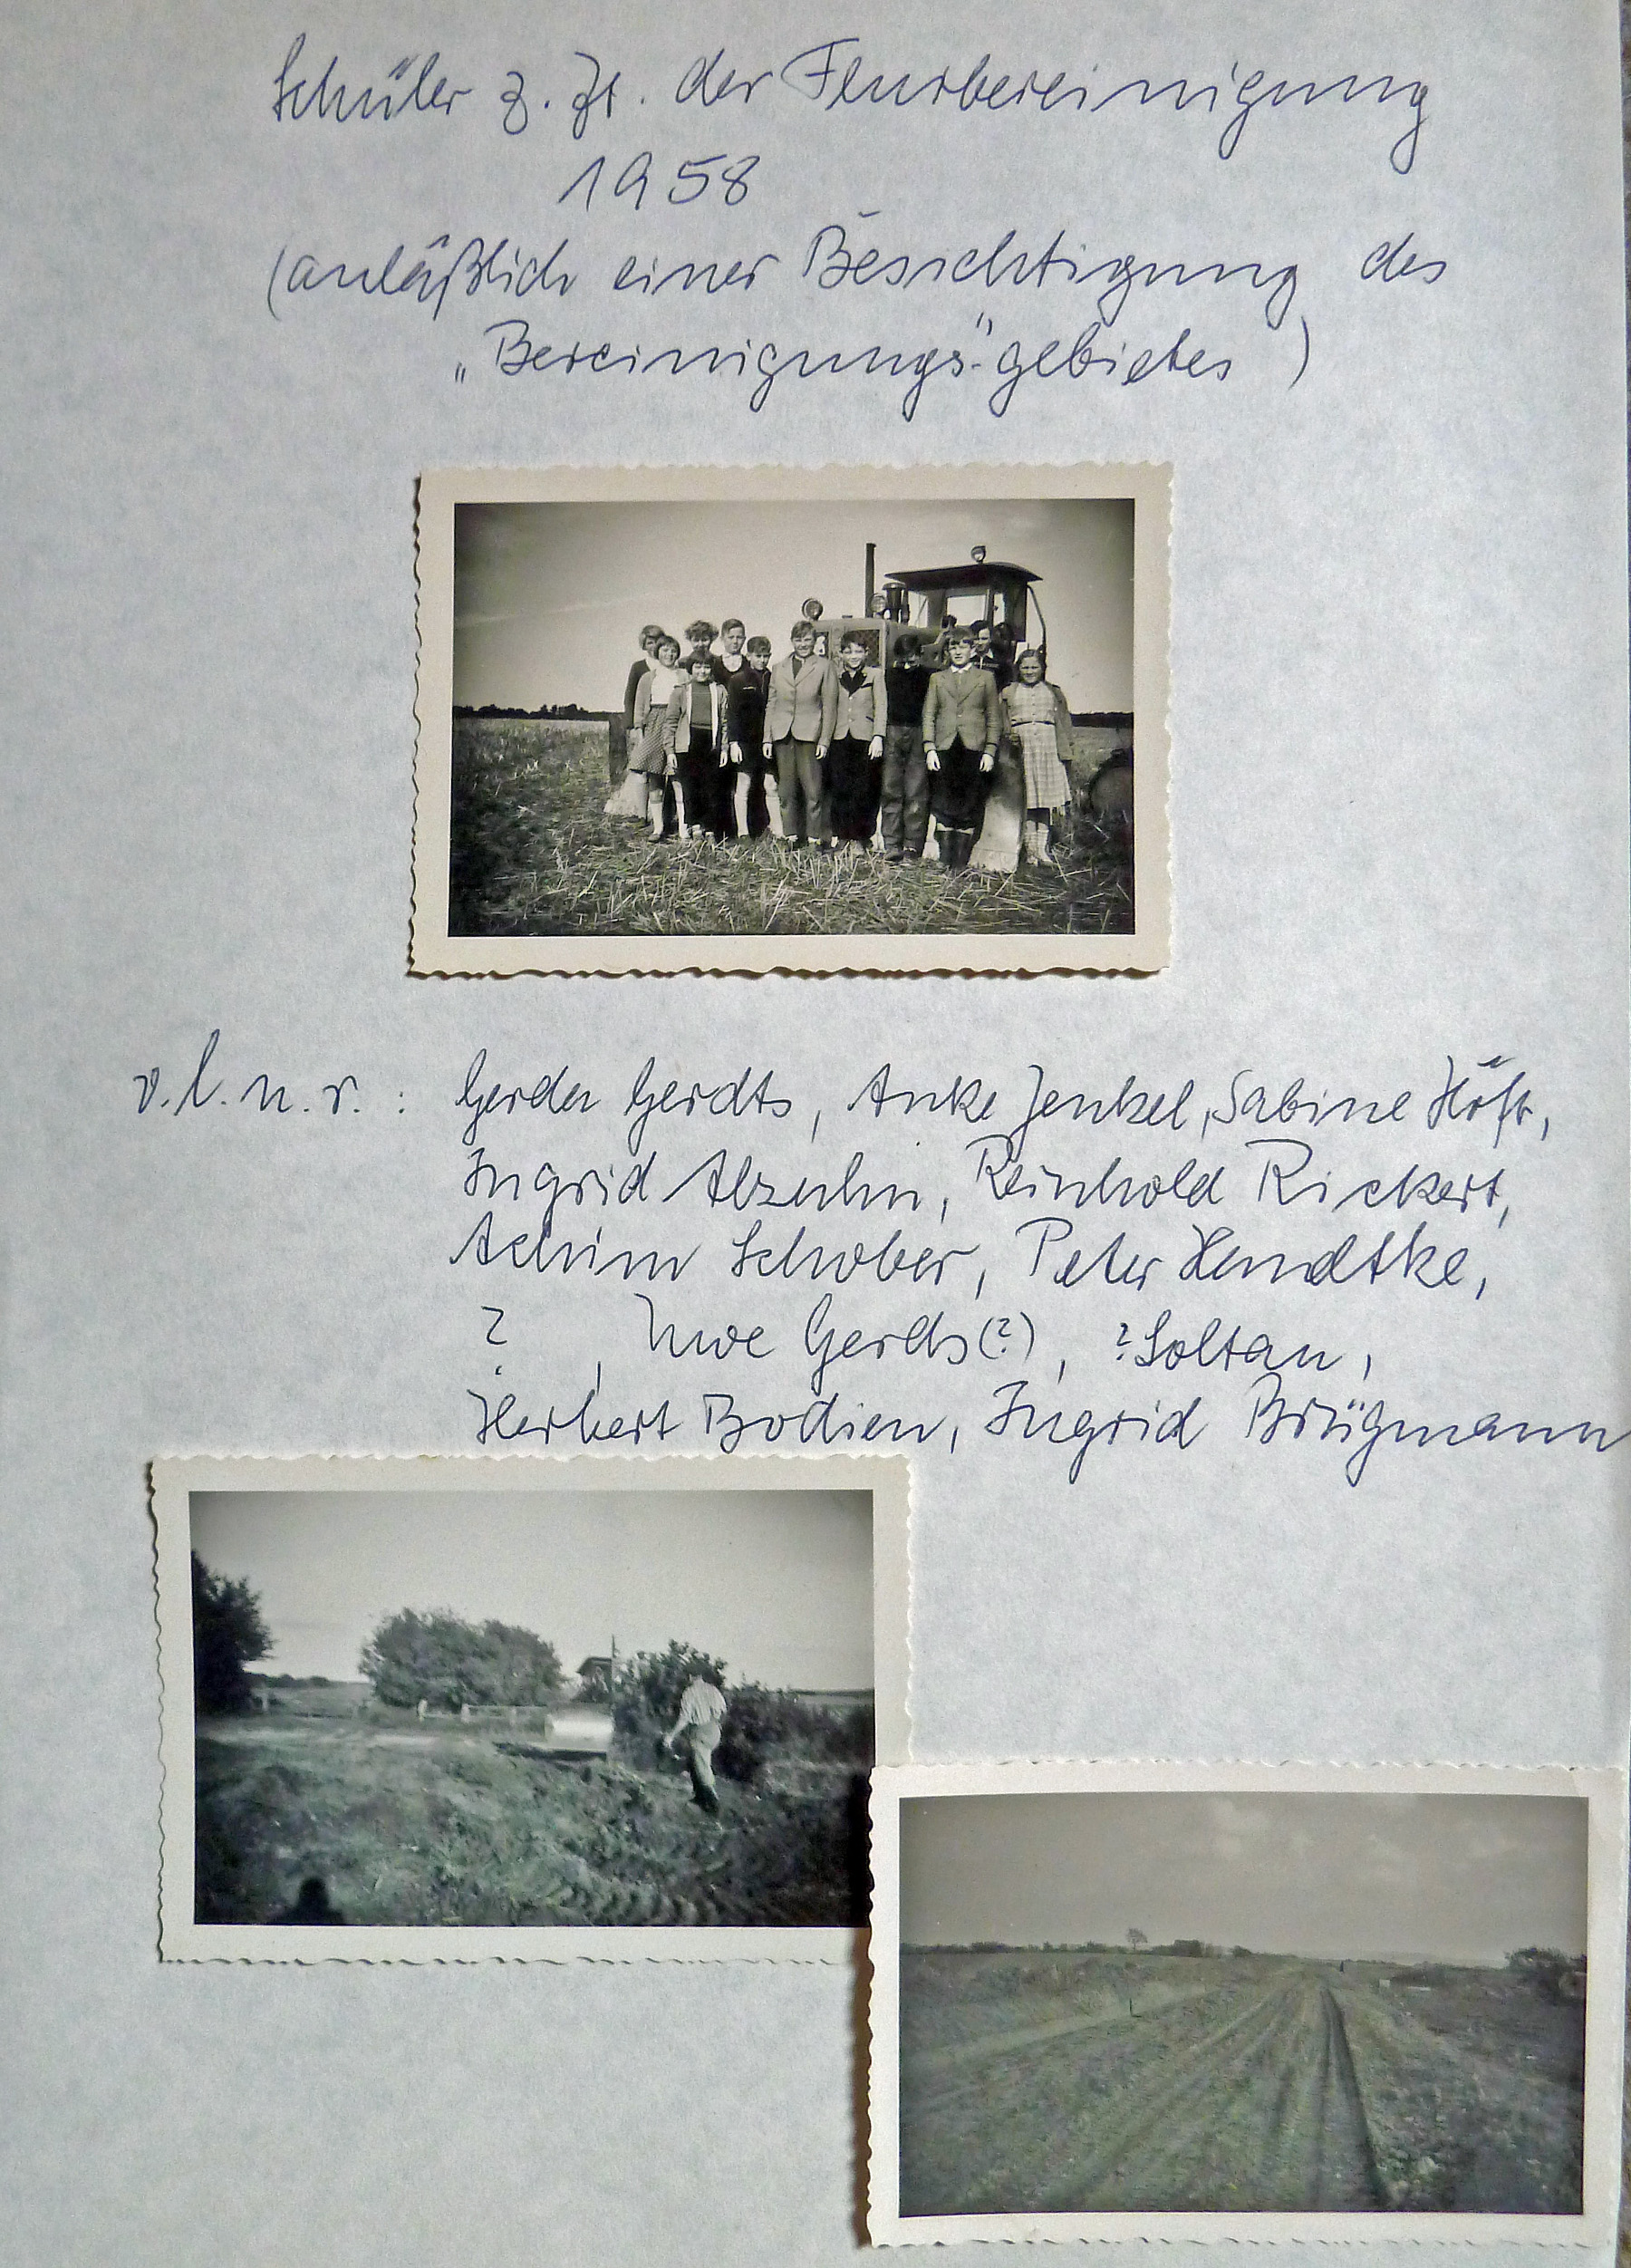 Schüler z. Zt. der Flurbereinigung
1958
(anläßlich einer Besichtigung des
„Bereinigungs"-gebietes)
v. l. n. r. : Gerda Gerdts, Anke Jenkel, Sabine Höft,
Ingrid Abzuhn, Reinhold Rickert,
Achim Schober, Peter Hendtke,
? , Uwe Gerds(?), ? Soltau,
Herbert Bodien, Ingrid Brügmann